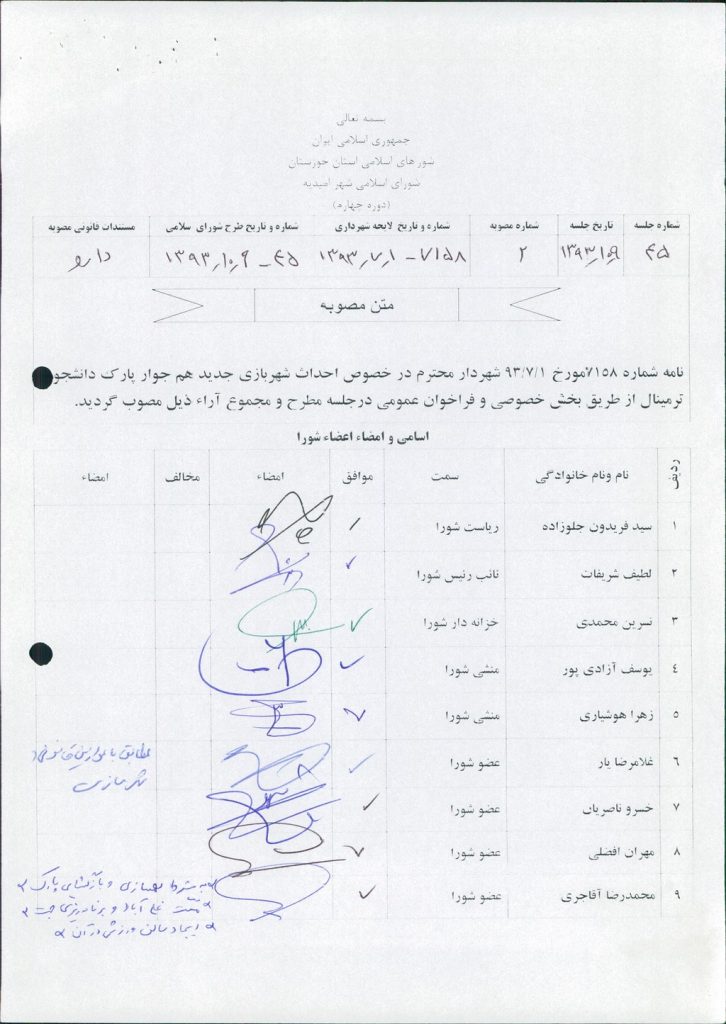 بسمه تعالی
جمهوری اسلامی ایران
شورهای اسلامی استان خوزستان
شورای اسلامی شهر امیدیه
(دوره چهارم)
شماره جلسه تاریخ جلسه شماره مصوبه شماره و تاریخ لایحه شهرداری شماره و تاریخ طرح شورای سلامی مستندات قانونی مصوبه
۴۵ ۱۳۹۳٫۱۰٫۹ ۲ ۷۱۵۸ - ۱۳۹۳٫۷٫۱ ۴۵ - ۱۳۹۳٫۱۰٫۹ دارد
متن مصوبه
نامه شماره ۷۱۵۸مورخ ۹۳/۷/۱ شهردار محترم در خصوص احداث شهربازی جدید هم جوار پارک دانشجو
ترمینال از طریق بخش خصوصی و فراخوان عمومی درجلسه مطرح و مجموع آراء ذیل مصوب گردید.
اسامی و امضاء اعضاء شورا
ردیف نام ونام خانوادگی سمت موافق امضاء مخالف امضاء
۱ سید فریدون جلوزاده ریاست شورا
۲ لطیف شریفات نائب رئیس شورا
۳ نسرین محمدی خزانه دار شورا
۴ یوسف آزادی پور منشی شورا
۵ زهرا هوشیاری منشی شورا
۶ غلامرضا یار عضو شورا
مطابق با موازین
شهرسازی
۷ خسرو ناصریان عضو شورا
۸ مهران افضلی عضو شورا
۹ محمدرضا آقاجری عضو شورا
به شرط بهسازی و بازگشایی پارک
آباد و برنامه ریزی جهت
ایجاد سالن ورزش در آن